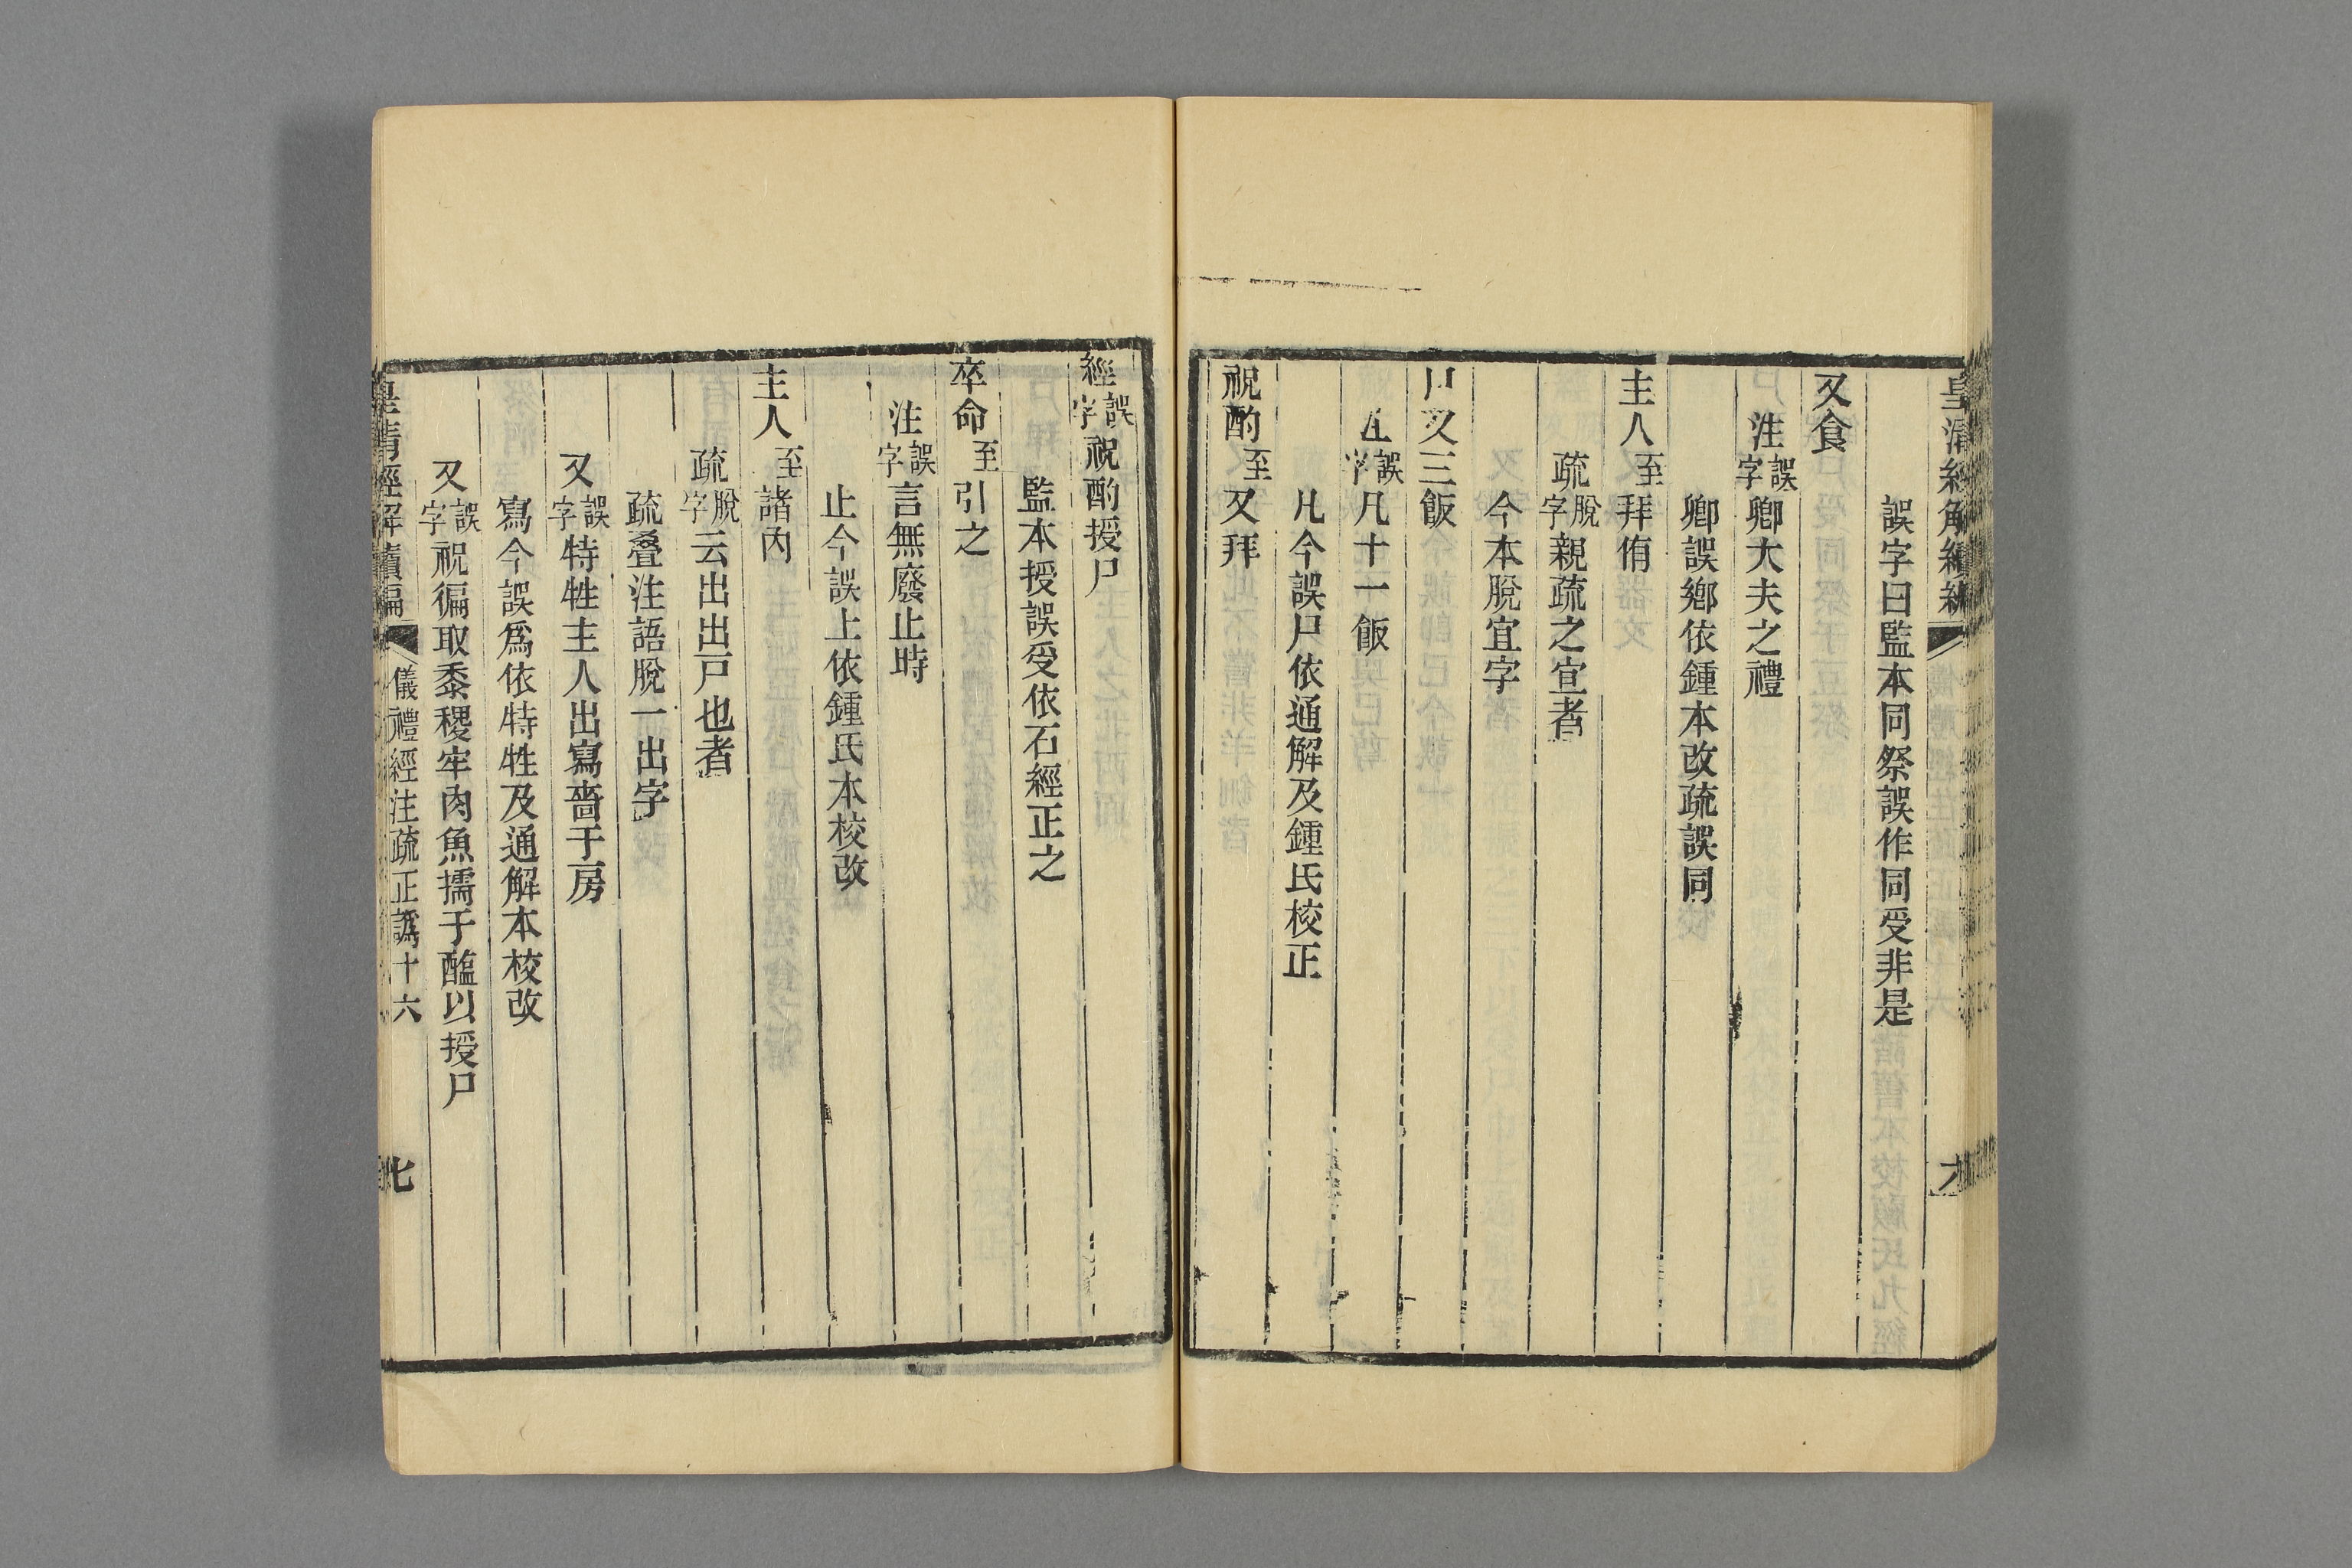 皇清經解續編
誤字曰監本同祭誤作同受非是
又食
注誤字卿大夫之禮
卿誤鄉依鍾本改疏誤同
主人至拜侑
疏脫字親疏之宜者
今本脫宜字
尸又三飯
注誤字凡十一飯
凡今誤尸依通解及鍾氏校正
祝酌至又拜
經誤字祝酌授尸
監本授誤受依石經正之
卒命至引之
注誤字言無廢止時
止今誤上依鍾氏本校改
主人至諸內
疏脫字云出出戶也者
疏疊注語脫一出字
又誤字特牲主人出寫嗇于房
寫今誤爲依特牲及通解本校改
又誤字祝徧取黍稷牢肉魚擩于醢以授尸
皇清經解續編 儀禮經注疏正譌十六 七